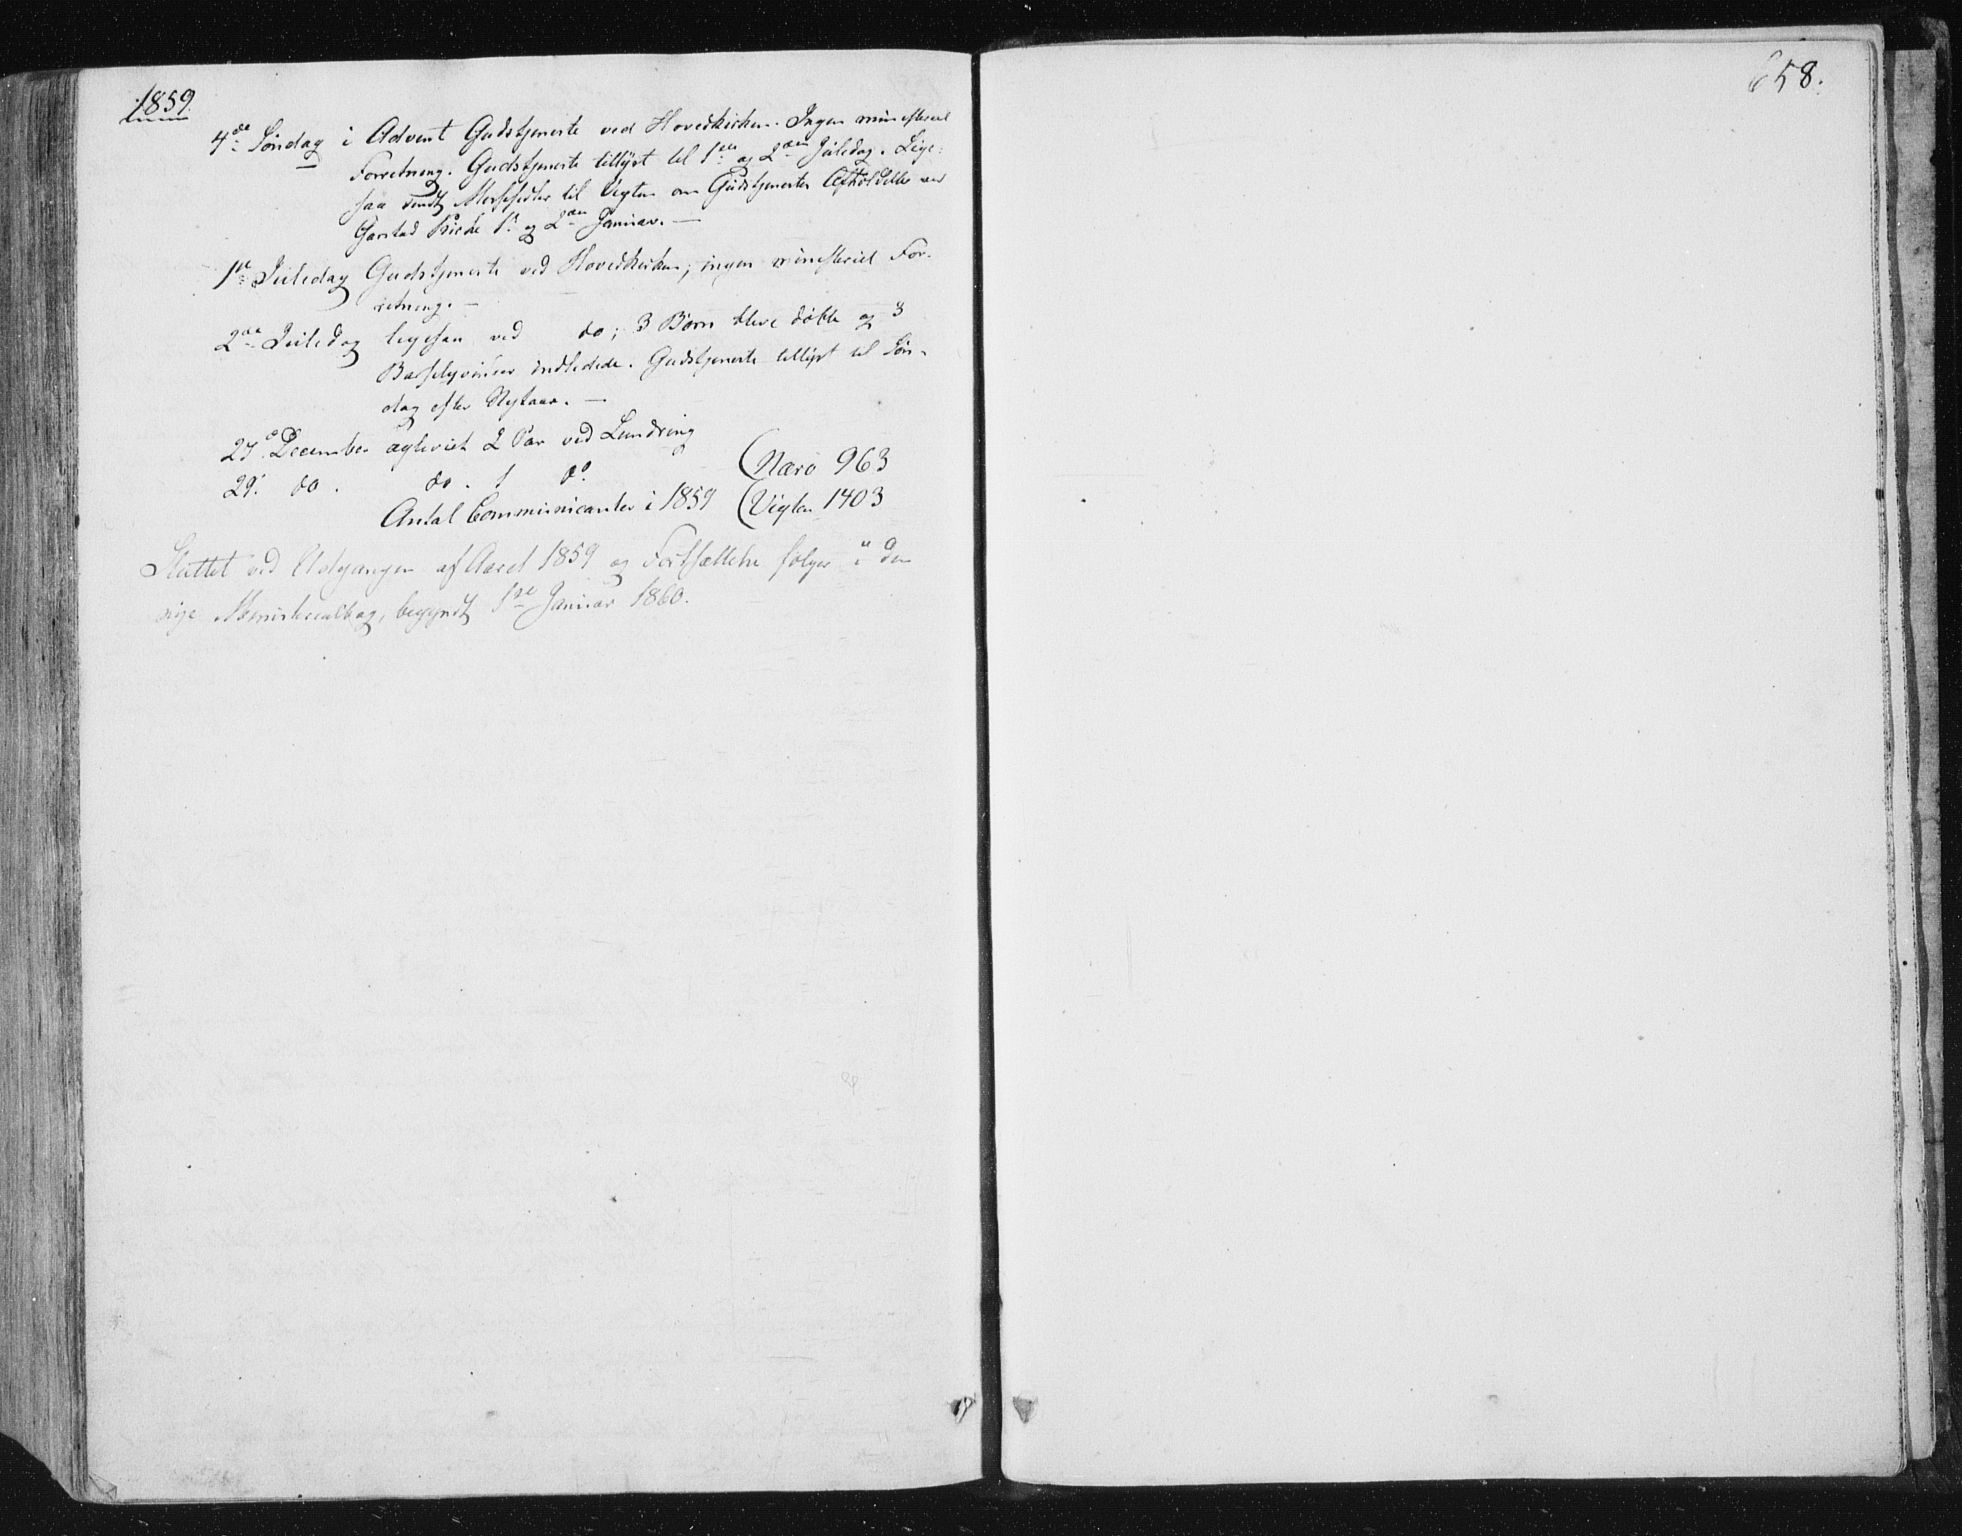 1859.
4de Søndag i Advent Gudstjeneste ved Hovedkirken. Ingen ministeriel
Forretning. Gudstjeneste tillyst til 1ste og 2den Juledag. Lige-
saa sendt Messeseder til Vigten om Gudstjenestes Afholdelse ved
Garstad Kirke 1ste og 2den Januar. —
1ste Juledag Gudstjeneste ved Hovedkirken; ingen ministeriel For-
retning. —
2den Juledag ligesaa ved do; 3 Børn bleve døbte og 3
Barselqvinder indledede. Gudstjeneste tillyst til Søn-
dag efter Nytaar. —
27de December ægteviet 2 Par ved Lundring
29. do. do. 1 do
(Nærø 963
Antal Communicanter i 1859 (Vigten 1403
Sluttet ved Udgangen af Aaret 1859 og Fortsættelse følger i den
nye Ministerialbog, begyndt 1ste Januar 1860.
658.